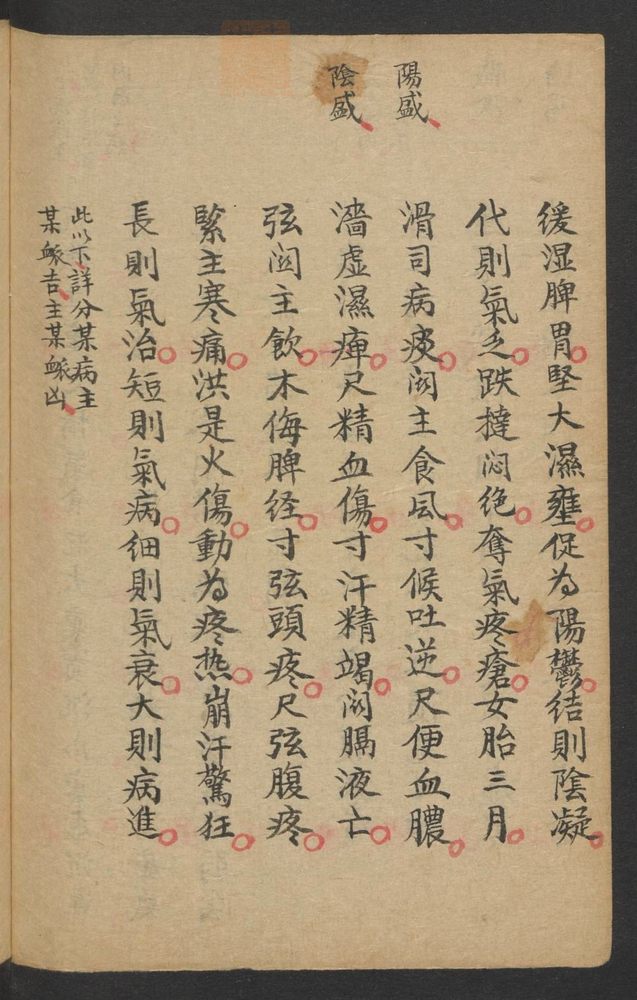 陽盛
陰盛
緩湿脾胃堅大濕壅促为陽鬱結則陰凝
代則氣乏跌撻闷绝奪氣疼瘡女胎三月
滑司病痰関主食风寸候吐逆尺便血膿
濇虛濕痺尺精血傷寸汗精竭関膈液亡
弦関主飲木侮脾经寸弦頭疼尺弦腹疼
緊主寒痛洪是火傷動为疼热崩汗驚狂
長則氣治短則氣病細則氣衰大則病進
此以下詳分某病主
某䘑吉主某䘑凶